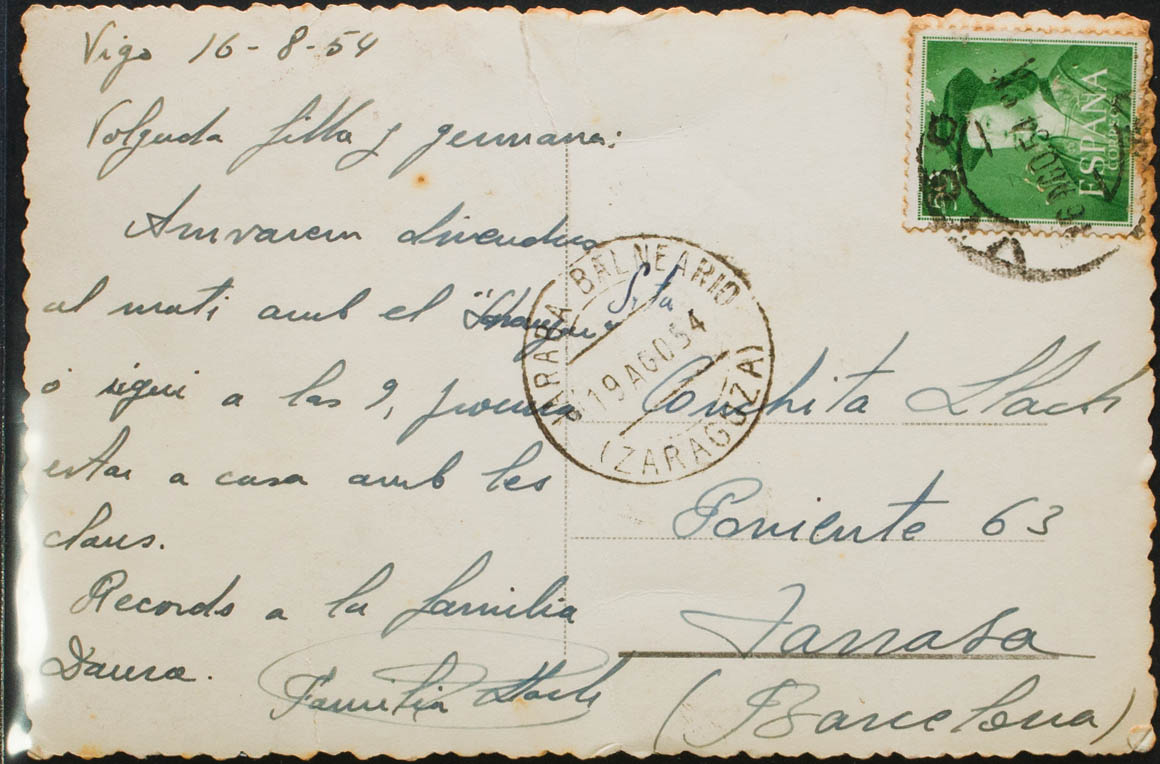 Vigo 16-8-54
Volguda filla y germana:
Arrivarem divendres
al mati amb el "Shangay"
ó sigui a las 9, procura
estar a casa amb les
claus.
Records a la familia
Daura.
Familia Llach
Srta
Conchita Llach
Poniente 63
Tarrasa
(Barcelona)
ESPAÑA
CORREOS
VIGO
JARABA BALNEARIO
19 AGO 54
(ZARAGOZA)